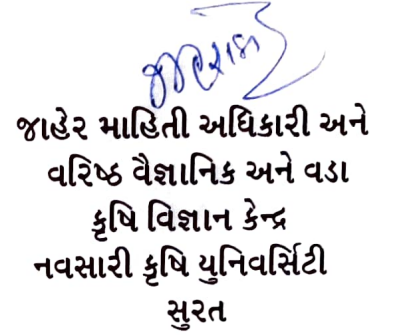 જાહેર માહિતી અધિકારી અને
વરિષ્ઠ વૈજ્ઞાનિક અને વડા
કૃષિ વિજ્ઞાન કેન્દ્ર
નવસારી કૃષિ યુનિવર્સિટી
સુરત